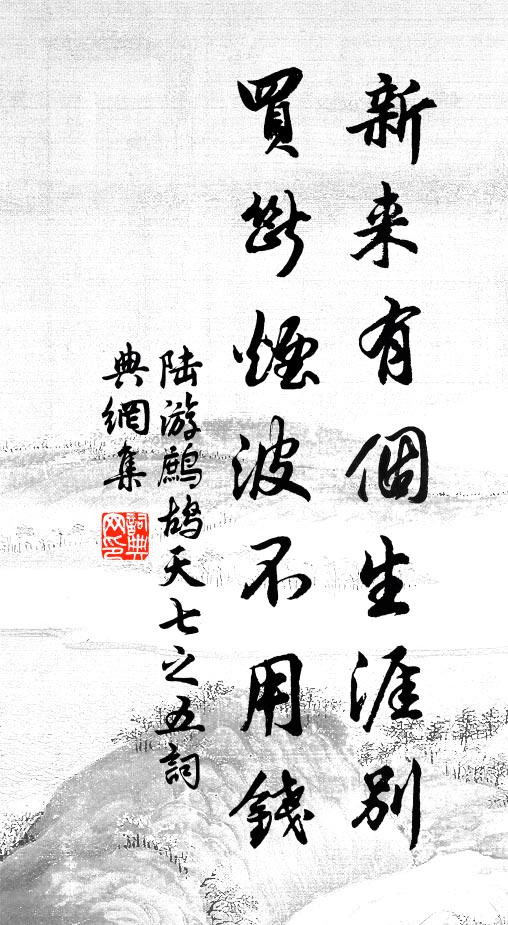 新来有個生涯別
買斷煙波不用錢
陆游鷓鴣天七之五詞
典網集
詞典
网印